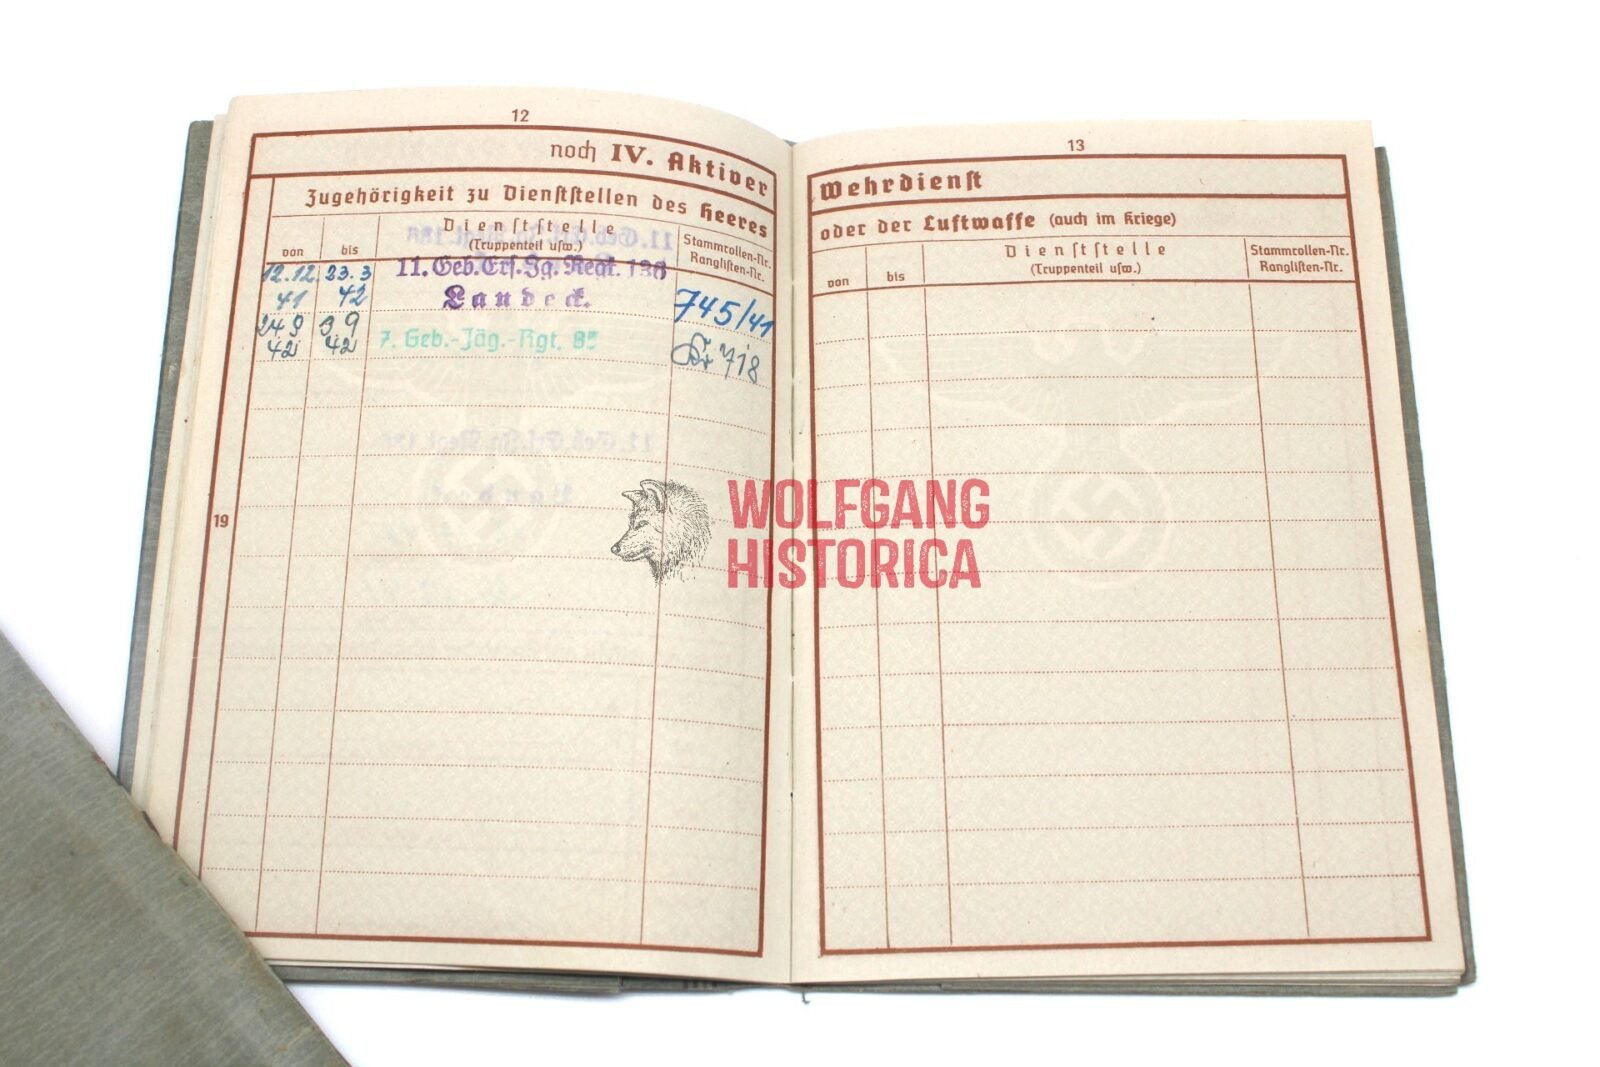 12
noch IV. Aktiver
Zugehörigkeit zu Dienststellen des Heeres
von
bis
Dienststelle
(Truppenteil usw.)
Stammrollen-Nr.
Ranglisten-Nr.
12.12. 23.3 11. Geb. Ers. Jg. Regt. 136
41 42 Landeck. 745/41
24 9 3.9 7. Geb.-Jäg.-Rgt. 85
42 42 Kr 718
19
13
Wehrdienst
oder der Luftwaffe (auch im Kriege)
von
bis
Dienststelle
(Truppenteil usw.)
Stammrollen-Nr.
Ranglisten-Nr.
WOLFGANG
HISTORICA